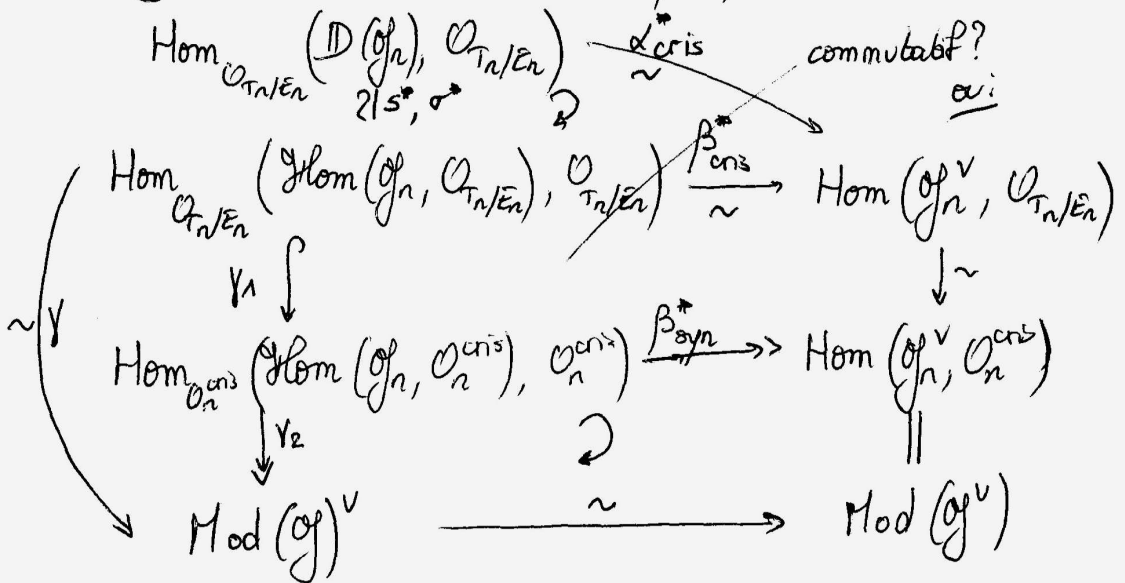 Hom_{O_{T_n/E_n}} (𝔻(𝒢_n), O_{T_n/E_n}) α*_{cris} ~ commutatif?
≀| s*, σ* oui
Hom_{O_{T_n/E_n}} (ℋom(𝒢_n, O_{T_n/E_n}), O_{T_n/E_n}) β*_{cris} ~ Hom(𝒢_n^∨, O_{T_n/E_n})
~ γ γ_1 ~
Hom_{O_n^{cris}} (ℋom(𝒢_n, O_n^{cris}), O_n^{cris}) β*_{syn} Hom(𝒢_n^∨, O_n^{cris})
γ_2 ||
Mod(𝒢)^∨ ~ Mod(𝒢^∨)